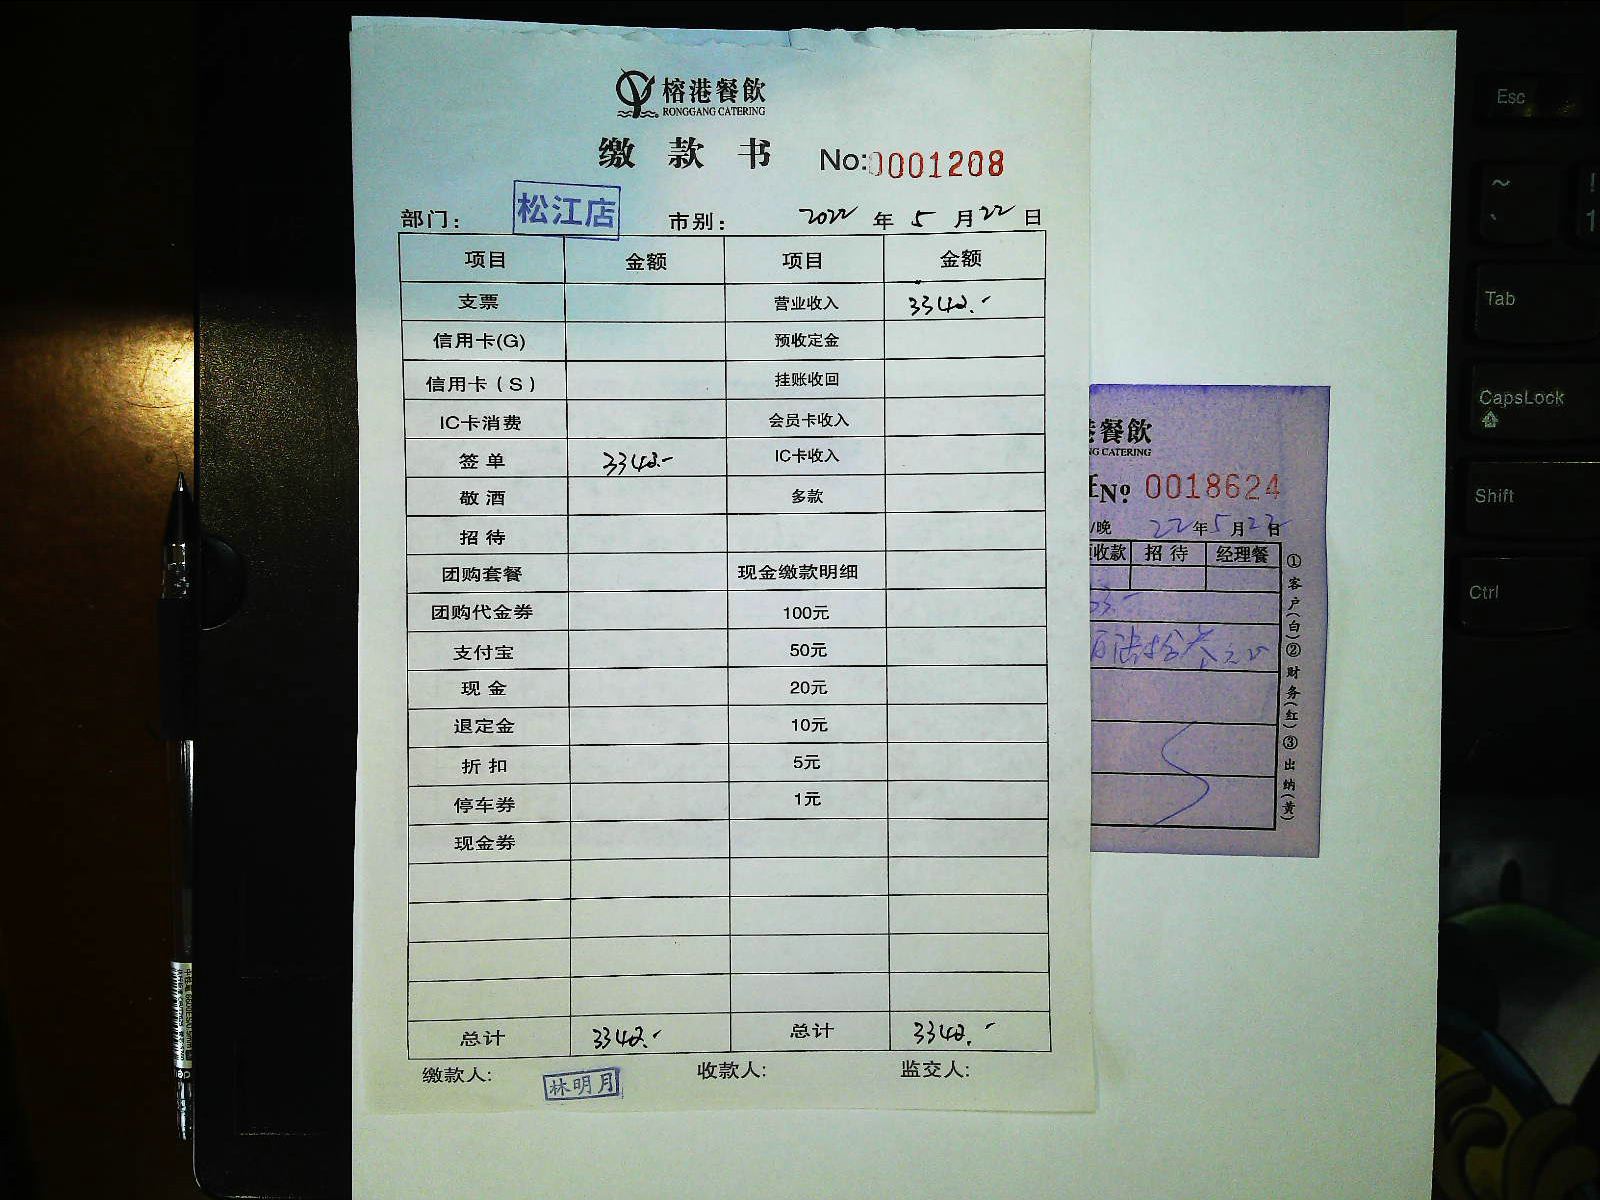 榕港餐飲
RONGGANG CATERING
缴款书 No:0001208
部门: 松江店 市别: 2022 年 5 月 22 日
项目 金额 项目 金额
支票 营业收入 3342.-
信用卡(G) 预收定金
信用卡(S) 挂账收回
IC卡消费 会员卡收入
签单 3342.- IC卡收入
敬酒 多款
招待
团购套餐 现金缴款明细
团购代金券 100元
支付宝 50元
现金 20元
退定金 10元
折扣 5元
停车券 1元
现金券
总计 3342.- 总计 3342.-
缴款人: 林明月 收款人: 监交人:
餐飲
NG CATERING
No 0018624
/晚 22年5月22日
收款 招待 经理餐
①客户(白)②财务(红)③出纳(黄)
Esc
~
`
!
1
Tab
CapsLock
Shift
Ctrl